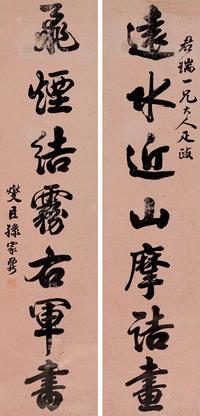 君瑞一兄大人正政
遠水近山摩詰畫
飛煙結霧右軍書
燮臣孫家鼐